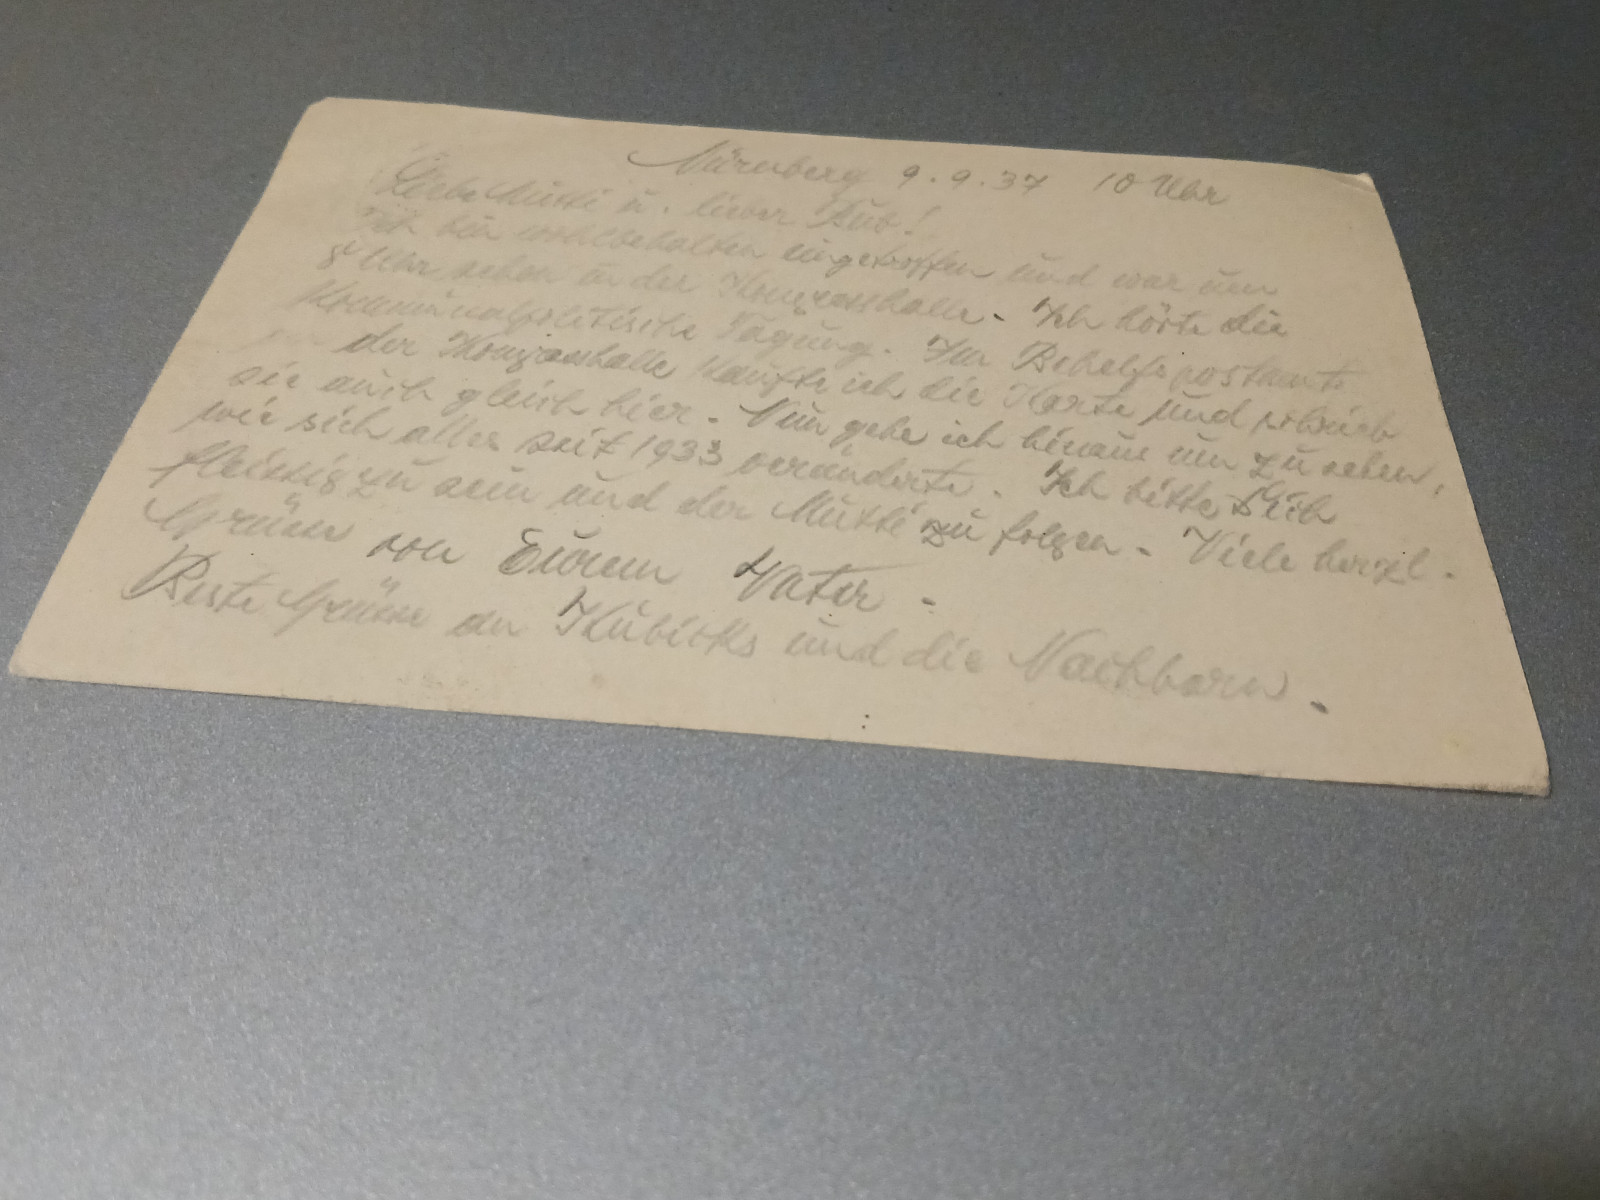 Nürnberg 9.9.37 10 Uhr
Liebe Mutti u. lieber Bub!
Ich bin wohlbehalten eingetroffen und war um
8 Uhr schon in der Kongresshalle. Ich hörte die
Kommunalpolitische Tagung. Im Behelfspostamte
der Kongresshalle kaufte ich die Karte und schrieb
sie auch gleich hier. Nun gehe ich hinaus um zu sehen,
wie sich alles seit 1933 veränderte. Ich bitte Dich
fleissig zu sein und der Mutti zu folgen. Viele herzl.
Grüsse von Eurem Vater.
Beste Grüsse an Kubicks und die Nachbarn.